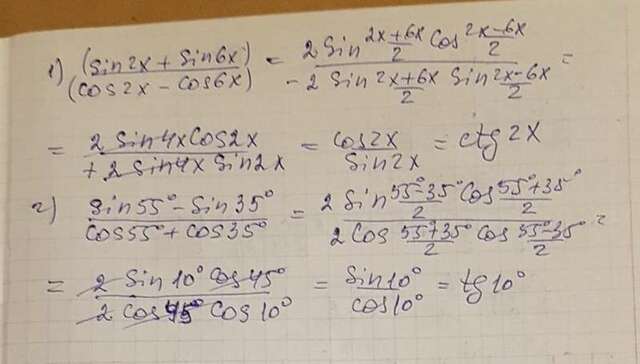 1) (sin2x + sin6x) / (cos2x - cos6x) = 2 sin (2x+6x)/2 cos (2x-6x)/2 / -2 sin (2x+6x)/2 sin (2x-6x)/2 =
= 2 sin4x cos2x / +2 sin4x sin2x = cos2x / sin2x = ctg 2x
2) sin55° - sin35° / cos55° + cos35° = 2 sin (55°-35°)/2 cos (55°+35°)/2 / 2 cos (55°+35°)/2 cos (55°-35°)/2 =
= 2 sin10° cos45° / 2 cos45° cos10° = sin10° / cos10° = tg10°